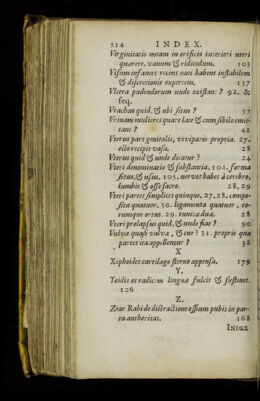 214 INDEX.
Virginitatis notam in orificio interiori uteri
quærere, vanum & ridiculum. 103
Visum infantes recens nati habent instabilem
& discretionis expertem. 137
Vlcera pudendorum unde existant? 92. &
seq.
Vrachus quid, & ubi situs? 37
Vrinam mulieres quare late & cum sibilo emit-
tant? 42
Vterus pars genitalis, viviparis propria. 27.
octo recipit vasa. 28
Vterus quid & unde dicatur? 24
Vteri denominatio & substantia, 104. forma
situs, & usus. 105. nervos habet à cerebro,
lumbis & osse sacro. 28, 29
Vteri partes simplices quinque. 27, 28. compo-
sitæ quatuor. 30. ligamenta quatuor, eo-
rumque ortus. 29. tunicæ duæ. 28
Vteri prolapsus quid, & unde fiat? 90
Vulvæ quasi valvæ, & cur? 31. propriè quæ
partes ita appellentur? 32
X
Xiphoides cartilago sterno appensa. 179
Y.
Yoidis os radicem linguæ fulcit & sustinet.
126
Z.
Zoar Rabi de distractione ossium pubis in par-
tu authoritas. 168
INDEX